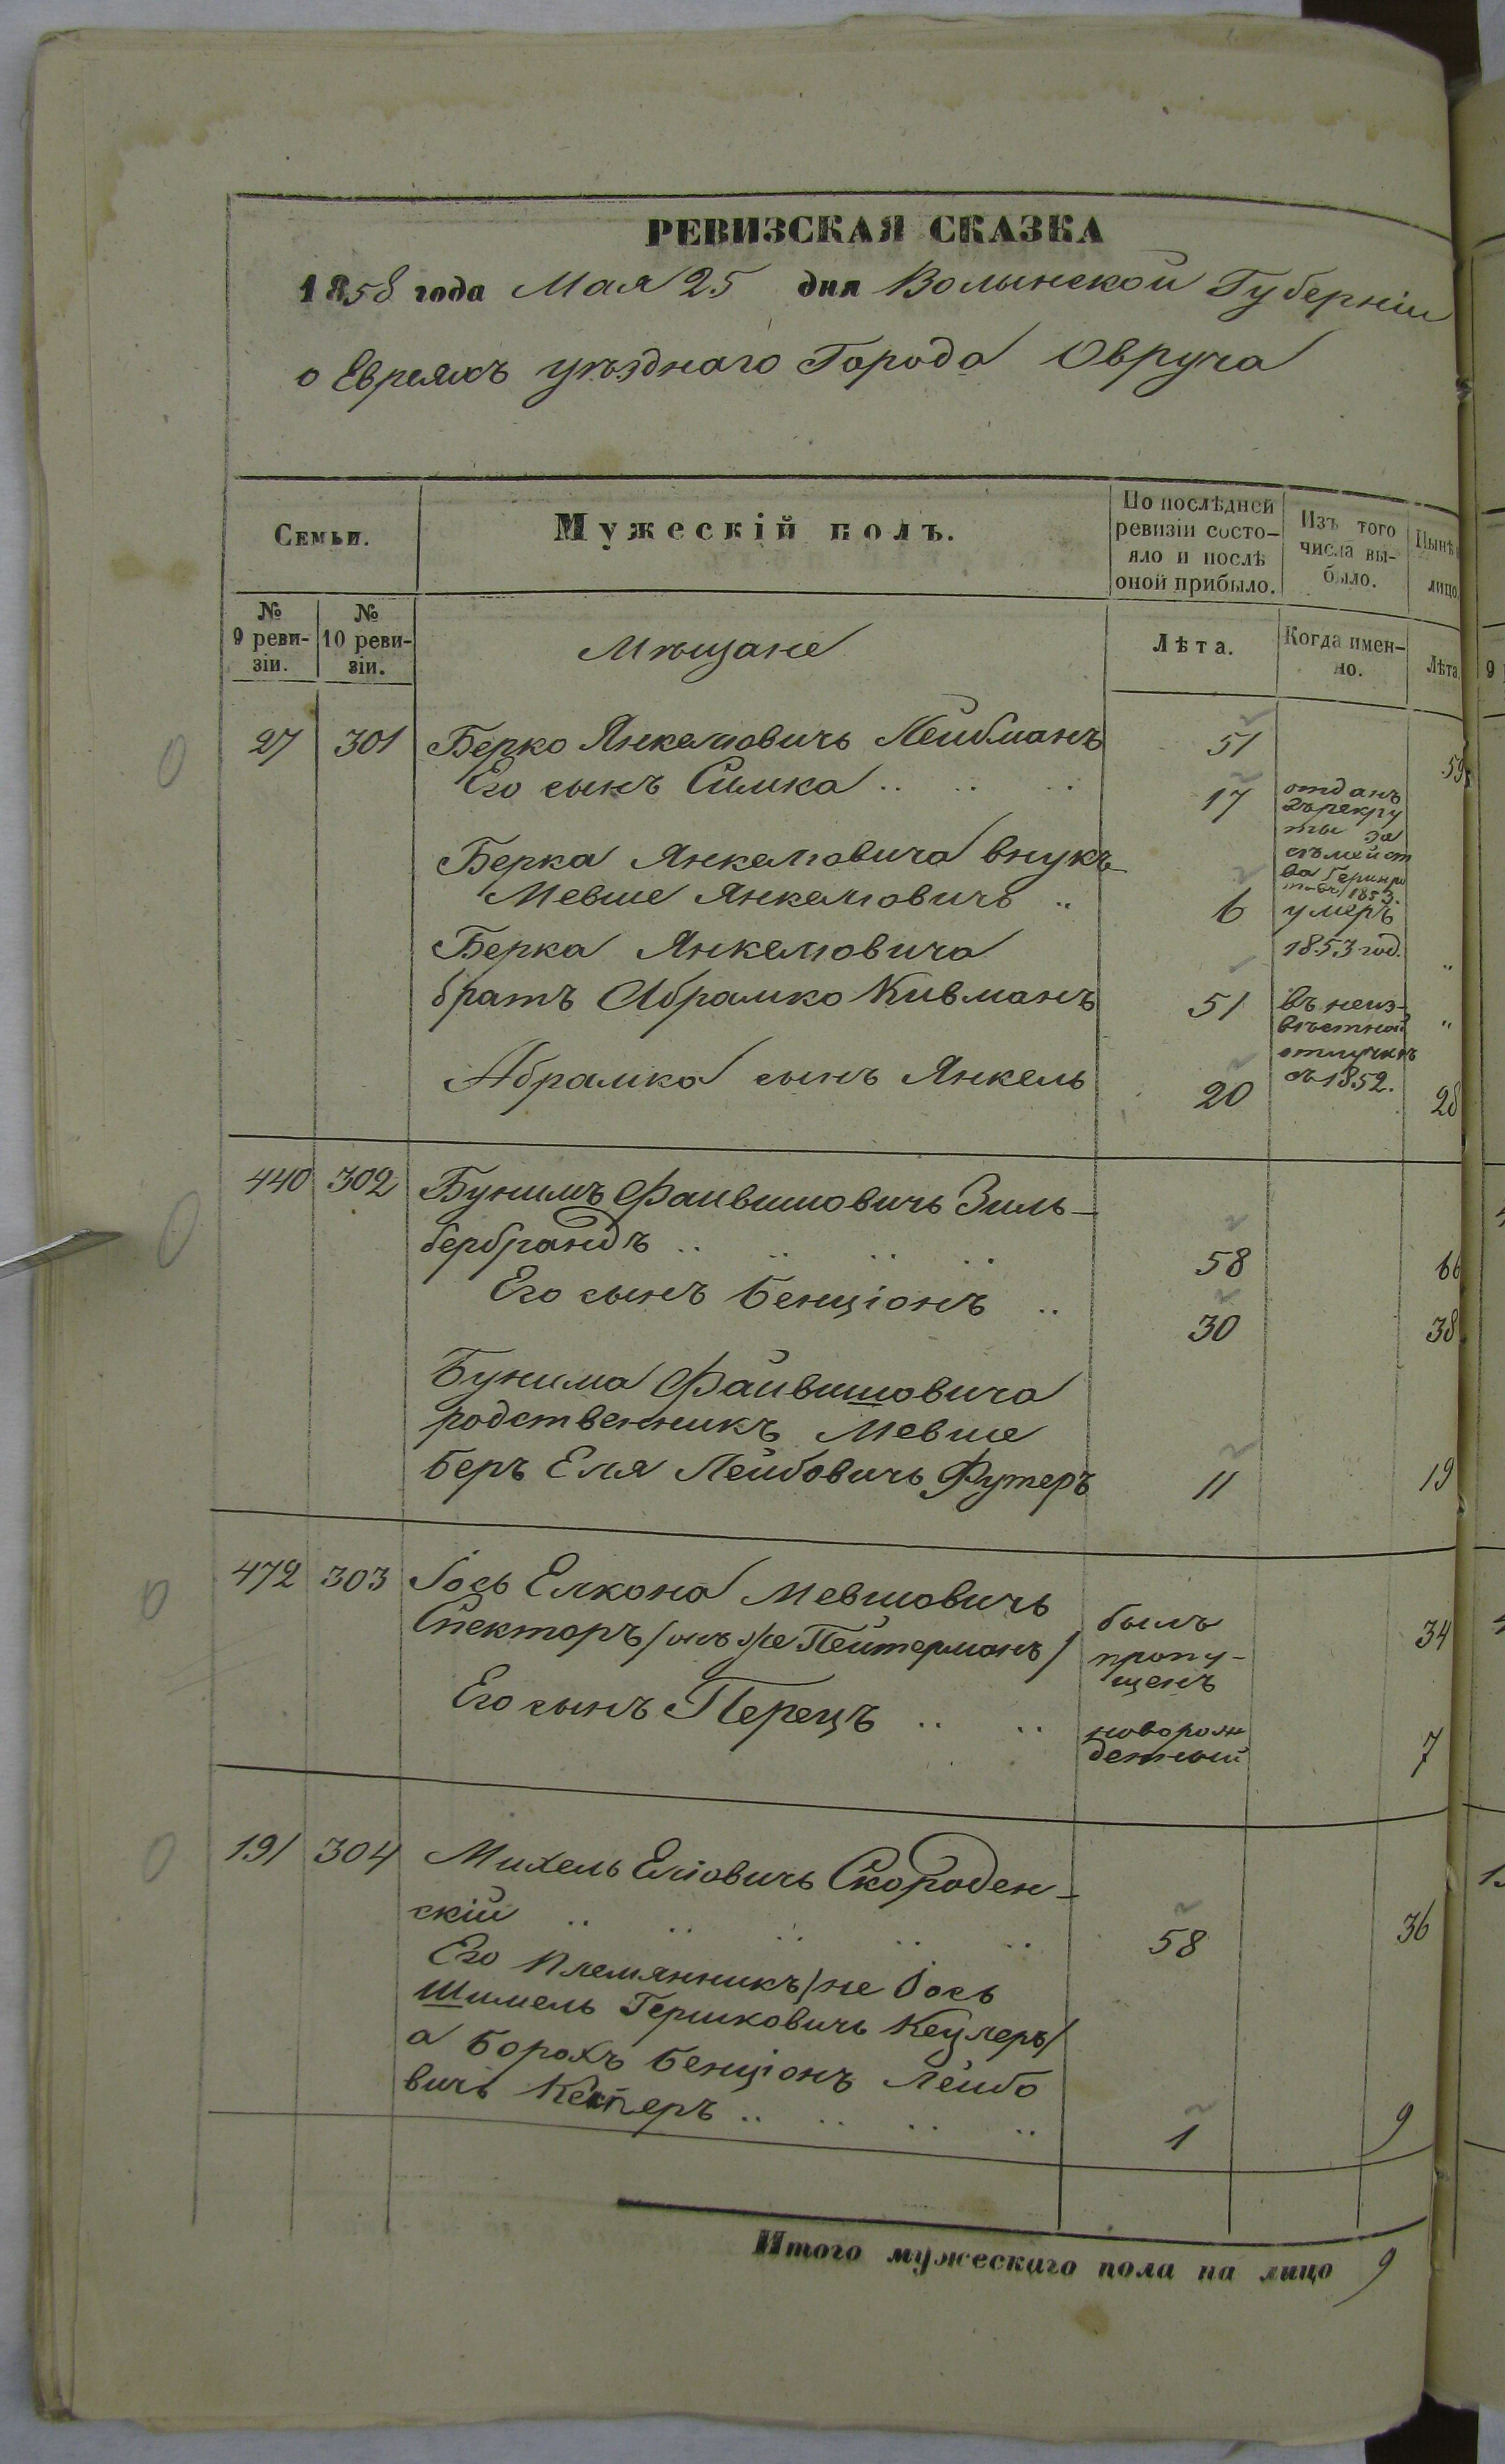 РЕВИЗСКАЯ СКАЗКА
1858 года Мая 25 дня Волынской Губерніи
о Евреяхъ уѣзднаго Города Овруча
Семьи.
Мужескій полъ.
По послѣдней
ревизіи состо-
яло и послѣ
оной прибыло.
Изъ того
числа вы-
было.
Нынѣ
лицо
№
9 реви-
зіи.
№
10 реви-
зіи.
Мѣщане
Лѣта.
Когда имен-
но.
Лѣта
27 301 Берко Янкелiовичъ Лейбманъ 51 59
Его сынъ Симка .. .. .. 17
отданъ
въ рекру
ты за
сѣмейст
ва
1853.
Берка Янкелiовича внукъ
Мевше Янкелiовичъ .. 6 умеръ
1853 год. "
Берка Янкелiовича
братъ Абрамко Кивманъ 51 въ неиз-
вѣстной "
отлучкѣ
съ 1852.
Абрамка сынъ Янкель 20 28
440 302 Бунимъ Файвишовичъ Зиль-
бербрандъ .. .. .. .. 58 66
Его сынъ Бенціонъ .. 30 38
Бунима Файвишовича
родственникъ Мевше
Беръ Еля Лейбовичъ Футеръ 11 19
472 303 Іось Елкона Мевшовичъ
Спекторъ /онъ же Пейтерманъ/ былъ
пропу-
щенъ 34
Его сынъ Перецъ .. .. новорож
денный 7
191 304 Михель Еліовичъ Скороден-
скій .. .. .. .. .. 58 36
Его племянникъ /не Іось
Шимель Гершковичъ Кецлеръ/
а Борохъ Бенціонъ Лейбо
вичъ .. .. .. .. 1 9
Итого мужескаго пола на лицо 9